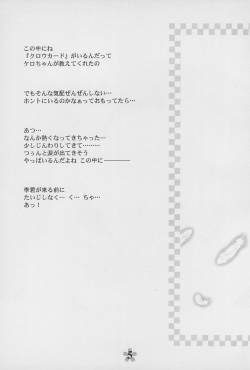 この中にね
『クロウカード』がいるんだって
ケロちゃんが教えてくれたの
でもそんな気配ぜんぜんしない…
ホントにいるのかなぁっておもってたら…
あつ…
なんか熱くなってきちゃった…
少しじんわりしてきて……
つぅんと涙が出てきそう
やっぱいるんだよね この中に――――
李君が来る前に
たいじしなく… く… ちゃ…
あっ！
5